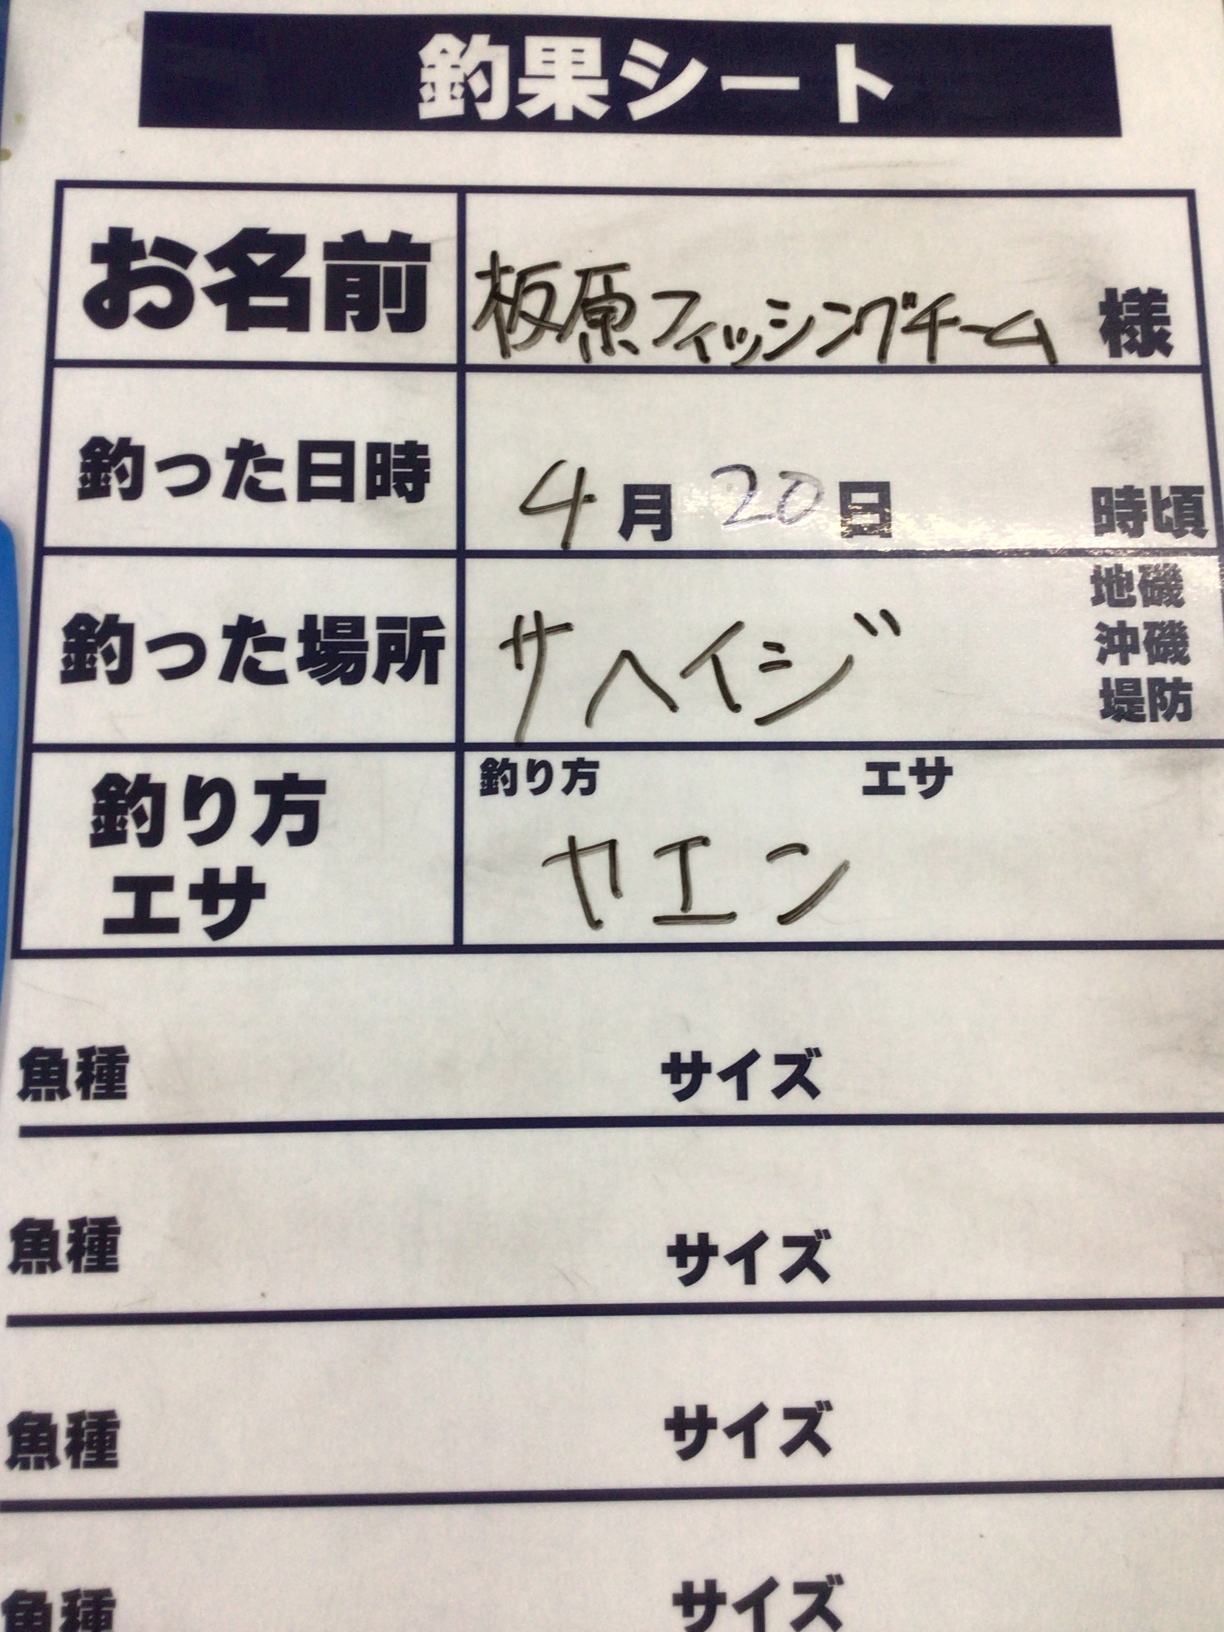 釣果シート
お名前 板原フィッシングチーム 様
釣った日時 4月20日 時頃
釣った場所 サヘイジ 地磯
沖磯
堤防
釣り方 エサ
釣り方
エサ
ヤエン
魚種 サイズ
魚種 サイズ
魚種 サイズ
魚種 サイズ